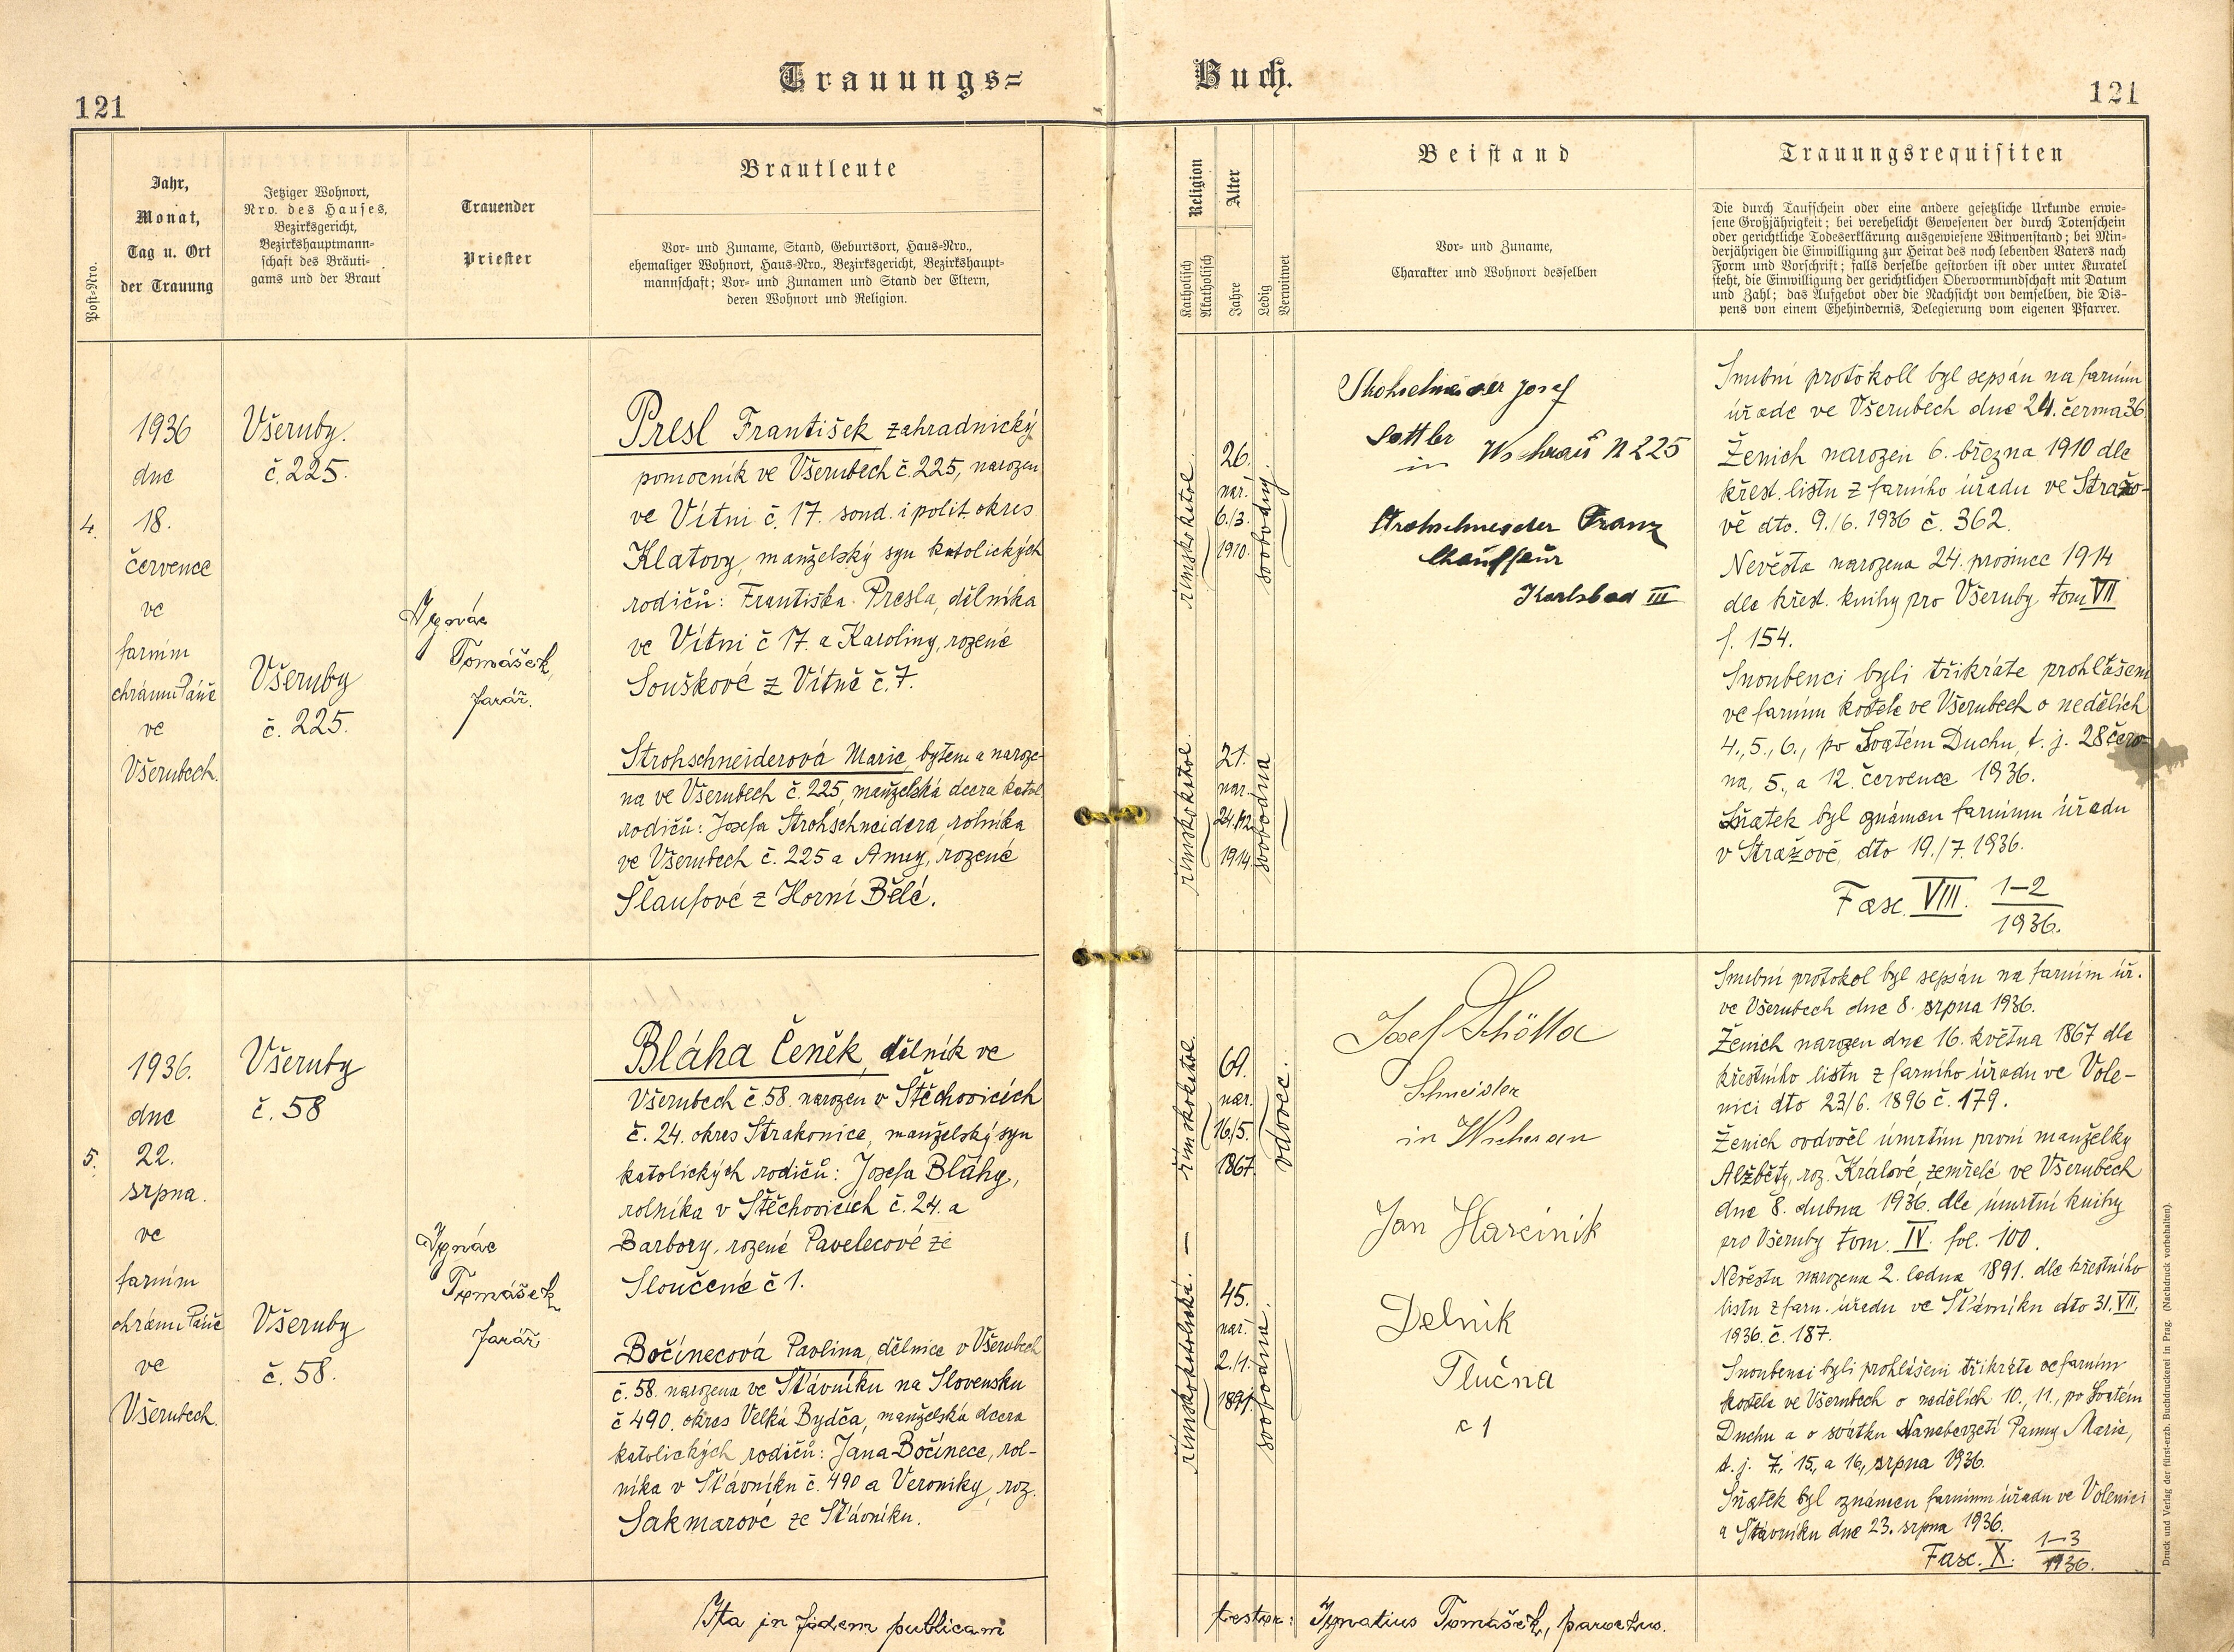 Trauungs=
Buch.
121
121
Post=Nro.
Jahr,
Monat,
Tag u. Ort
der Trauung
Jetziger Wohnort,
Nro. des Hauses,
Bezirksgericht,
Bezirkshauptmann=
schaft des Bräuti=
gams und der Braut
Trauender
Priester
Brautleute
Vor= und Zuname, Stand, Geburtsort, Haus=Nro.,
ehemaliger Wohnort, Haus=Nro., Bezirksgericht, Bezirkshaupt=
mannschaft; Vor= und Zunamen und Stand der Eltern,
deren Wohnort und Religion.
Religion
Katholisch
Akatholisch
Alter
Jahre
Ledig
Verwitwet
Beistand
Vor= und Zuname,
Charakter und Wohnort desselben
Trauungsrequisiten
Die durch Taufschein oder eine andere gesetzliche Urkunde erwie=
sene Großjährigkeit; bei verehelicht Gewesenen der durch Totenschein
oder gerichtliche Todeserklärung ausgewiesene Witwenstand; bei Min=
derjährigen die Einwilligung zur Heirat des noch lebenden Vaters nach
Form und Vorschrift; falls derselbe gestorben ist oder unter Kuratel
steht, die Einwilligung der gerichtlichen Obervormundschaft mit Datum
und Zahl; das Aufgebot oder die Nachsicht von demselben, die Dis=
pens von einem Ehehindernis, Delegierung vom eigenen Pfarrer.
4.
1936
dne
18.
července
ve
farním
chrámu Páně
ve
Všerubech.
Všeruby.
č. 225.
Všeruby
č. 225.
Ygnác
Tomášek,
farář.
Presl František zahradnický
pomocník ve Všerubech č. 225, narozen
ve Vítni č. 17. soud. i polit. okres
Klatovy, manželský syn katolických
rodičů: Františka Presla, dělníka
ve Vítni č 17. a Karoliny, rozené
Souškové z Vítně č. 7.
Strohschneiderová Marie, bytem a naroze-
na ve Všerubech č. 225, manželská dcera katol.
rodičů: Josefa Strohschneidera, rolníka
ve Všerubech č. 225 a Anny, rozené
Šlaufové z Horní Bělé.
římskokatol.
26.
nar.
6./3.
1910.
svobodný.
římskokatol.
21.
nar.
24./12.
1914.
svobodna
Josef
Sattler
in Wscherau N 225
Strohschneider Franz
Chauffeur
Karlsbad III
Snubní protokoll byl sepsán na farním
úřade ve Všerubech dne 24. června 36
Ženich narozen 6. března 1910 dle
křest. listu z farního úřadu ve Stražo-
vě dto. 9./6. 1936 č. 362.
Nevěsta narozena 24. prosince 1914
dle křest. knihy pro Všeruby tom VII
f. 154.
Snoubenci byli třikráte prohlášeni
ve farním kostele ve Všerubech o nedělích
4., 5., 6., po Svatém Duchu, t. j. 28 červ-
na, 5., a 12. července 1936.
Sňatek byl oznámen farnímu úřadu
v Stražově, dto 19./7. 1936.
Fasc. VIII. 1-2
1936.
5.
1936.
dne
22.
srpna.
ve
farním
chrámu Páně
ve
Všerubech.
Všeruby
č. 58
Všeruby
č. 58.
Ygnác
Tomášek
farář.
Bláha Čeněk, dělník ve
Všerubech č 58. narozen v Štěchovicích
č. 24. okres Strakonice, manželský syn
katolických rodičů: Josefa Bláhy,
rolníka v Štěchovicích č. 24. a
Barbory, rozené Pavelecové ze
Sloučené č 1.
Bočínecová Pavlina, dělnice v Všerubech
č. 58. narozena ve Sťávníku na Slovensku
č 490. okres Velká Bydča, manželská dcera
katolických rodičů: Jána Bočínece, rol-
níka v Sťávníku č. 490 a Veroniky, roz.
Sakmarové ze Sťávníku.
římskokatol.
69.
nar.
16./5.
1867.
vdovec.
římskokatolická.
45.
nar.
2./1.
1891.
svobodna.
Josef
Schneider
in Wscherau
Jan Harcinik
Delnik
Tlučna
č 1
Snubní protokol byl sepsán na farním úř.
ve Všerubech dne 8. srpna 1936.
Ženich narozen dne 16. května 1867 dle
křestního listu z farního úřadu ve Vole-
nici dto 23/6. 1896 č. 179.
Ženich ovdověl úmrtím první manželky
Alžběty, roz. Králové, zemřelé ve Všerubech
dne 8. dubna 1936. dle úmrtní knihy
pro Všeruby tom. IV. fol. 100.
Nevěsta narozena 2. ledna 1891. dle křestního
listu z farn. úřadu ve Sťávníku dto 31. VII.
1936. č. 187.
Snoubenci byli prohlášeni třikráte ve farním
kostele ve Všerubech o nedělích 10., 11., po Svatém
Duchu a o svátku Nanebevzetí Panny Marie,
t. j. 7., 15., a 16., srpna 1936.
Sňatek byl oznámen farnímu úřadu ve Volenici
a Sťávníku dne 23. srpna 1936.
Fasc. X. 1-3
1936.
Ita in fidem publicam
testor: Ygnatius Tomášek, parochus.
Druck und Verlag der fürst=erzb. Buchdruckerei in Prag. (Nachdruck vorbehalten).